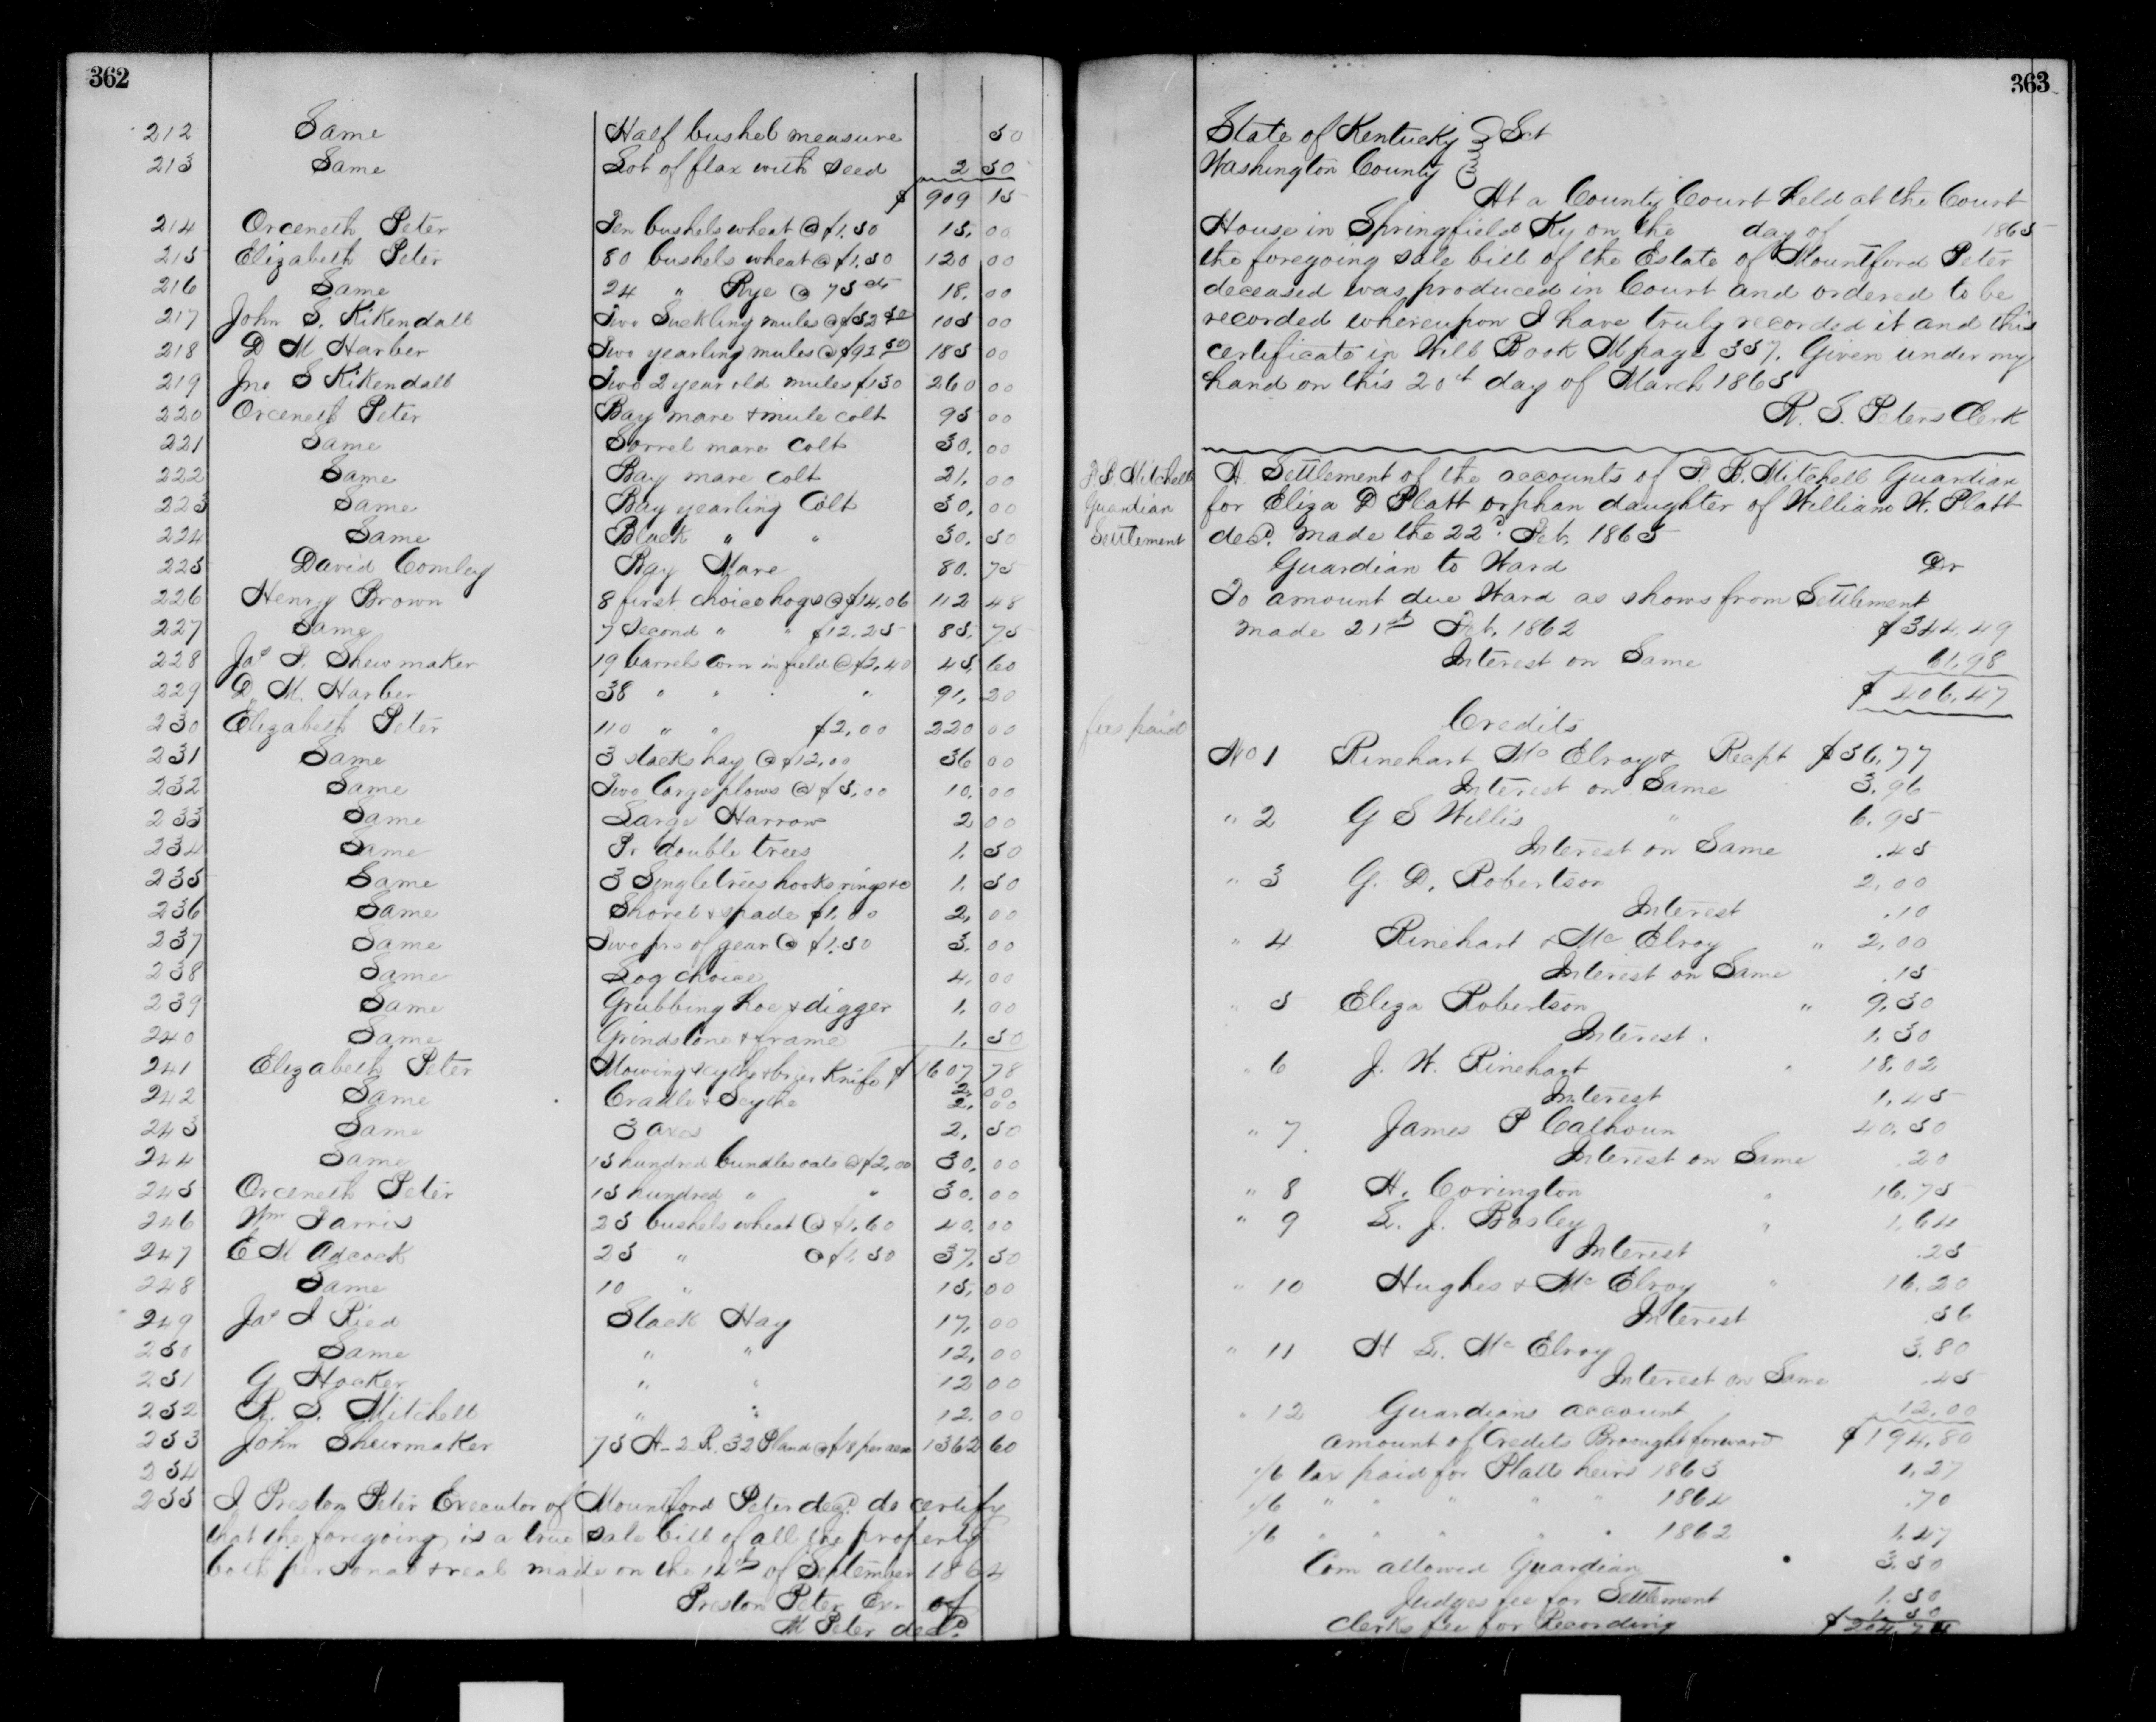 362
212 Same Half bushel measure 50
213 Same Lot of flax with Seed 2 50
$ 909 15
214 Orceneth Peter Ten bushels wheat @ $1.50 15.00
215 Elizabeth Peter 80 bushels wheat @ $1.50 120 00
216 Same 24 " Rye @ 75 cts 18.00
217 John S. Kikendall Two Suckling mules @ $52 50 105 00
218 D M Harber Two yearling mules @ $92 50 185 00
219 Jno S Kikendall Two 2 year old mules $130 260 00
220 Orceneth Peter Bay mare & mule colt 95 00
221 Same Sorrel mare Colt 30.00
222 Same Bay mare colt 21.00
223 Same Bay yearling Colt 30.00
224 Same Black " " 30.50
225 David Comley Bay Mare 80.75
226 Henry Brown 8 first choice hogs @ $14.06 112 48
227 Same 7 Second " " $12.25 85.75
228 Jas P. Shewmaker 19 barrels Corn in field @ $2.40 45 60
229 D. M. Harber 38 " " " 91.20
230 Elizabeth Peter 110 " " $2.00 220 00
231 Same 3 stacks hay @ $12.00 36 00
232 Same Two Large plows @ $5.00 10.00
233 Same Large Harrow 2.00
234 Same Pr double trees 1.50
235 Same 3 Singletrees hooks rings &c 1.50
236 Same Shovel & spade $1.00 2.00
237 Same Two prs of gear @ $1.50 3.00
238 Same Log chain 4.00
239 Same Grubbing hoe & digger 1.00
240 Same Grindstone & frame 1.50
241 Elizabeth Peter Mowing scythe & brier Knife $ 1607 78
2.00
242 Same Cradle & Scythe 2.00
243 Same 3 axes 2.50
244 Same 15 hundred bundles oats @ $2.00 30.00
245 Orceneth Peter 15 hundred " " 30.00
246 Wm Parris 25 bushels wheat @ $1.60 40.00
247 E M Adcock 25 " @ $1.50 37.50
248 Same 10 " 15.00
249 Jas I Ried Stack Hay 17.00
250 Same " " 12.00
251 G Hocker " " 12 00
252 R. S. Mitchell " " 12.00
253 John Shewmaker 75 A-2-R. 32 P land @ $18 per acre 1362 60
254
255 I Preston Peter Executor of Mountford Peter decd do certify
that the foregoing is a true sale bill of all the property
both personal & real made on the 14th of September 1864
Preston Peter Exr of
M Peter decd.
363
State of Kentucky } Sct
Washington County }
At a County Court held at the Court
House in Springfield Ky on the day of 1865
the foregoing sale bill of the Estate of Mountford Peter
deceased was produced in Court and ordered to be
recorded whereupon I have truly recorded it and this
certificate in Will Book M page 357. Given under my
hand on this 20t day of March 1865
R. S. Peters Clerk
P. B. Mitchell
Guardian
Settlement
A Settlement of the accounts of P. B. Mitchell Guardian
for Eliza D Platt orphan daughter of William W. Platt
decd. made the 22d. Feb. 1865
Guardian to Ward Dr
To amount due Ward as shows from Settlement
made 21st Feb. 1862 $344.49
Interest on Same 61.98
$406.47
fees paid
Credits
No 1 Rinehart Mc Elroy & Recpt $56.77
Interest on Same 3.96
" 2 G S Willis " 6.95
Interest on Same .45
" 3 G. D. Robertson 2.00
Interest .10
" 4 Rinehart & Mc Elroy " 2.00
Interest on Same .15
" 5 Eliza Robertson " 9.50
Interest. 1.30
" 6 J. W. Rinehart " 18.02
Interest 1.45
" 7 James P Calhoun 40.50
Interest on Same .20
" 8 H. Covington " 16.75
" 9 L. J. Bosley " 1.64
Interest .25
" 10 Hughes & Mc Elroy " 16.20
Interest .56
" 11 H L. Mc Elroy 3.80
Interest on Same .45
" 12 Guardians account 12.00
amount of Credits Brought forward $194.80
1/6 tax paid for Platts heirs 1863 1.27
1/6 " " " " " 1864 .70
1/6 " " " " " 1862 1.47
Com allowed Guardian 3.50
Judges fee for Settlement 1.50
Clerks fee for Recording 1.50